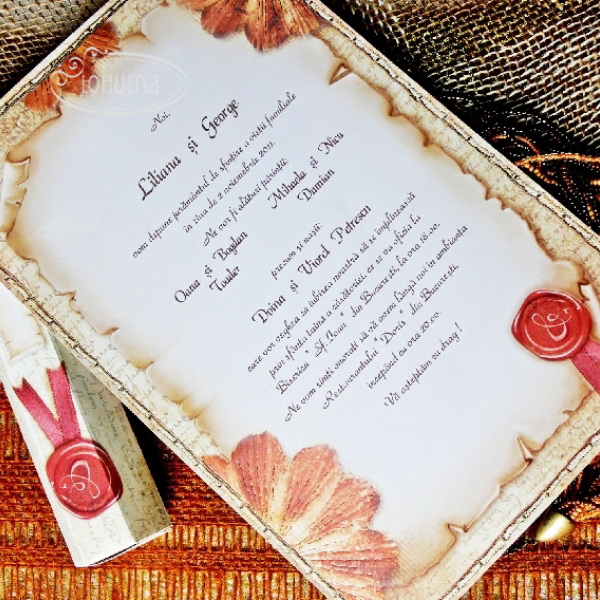 Noi,
Liliana și George
vom depune jurământul de sfințire a vieții familiale
în ziua de 2 noiembrie 2011.
Ne vor fi alături părinții:
Oana și Bogdan Mihaela și Nicu
Toader Damian
precum și nașii:
Doina și Viorel Petrescu
care vor veghea ca iubirea noastră să se împlinească
prin sfânta taină a căsătoriei, ce se va oficia la
Biserica "Sf. Ioan" din București, la ora 16.00.
Ne vom simți onorați să vă avem lângă noi în ambianța
Restaurantului "Doris" din București,
începând cu ora 20.00.
Vă așteptăm cu drag !